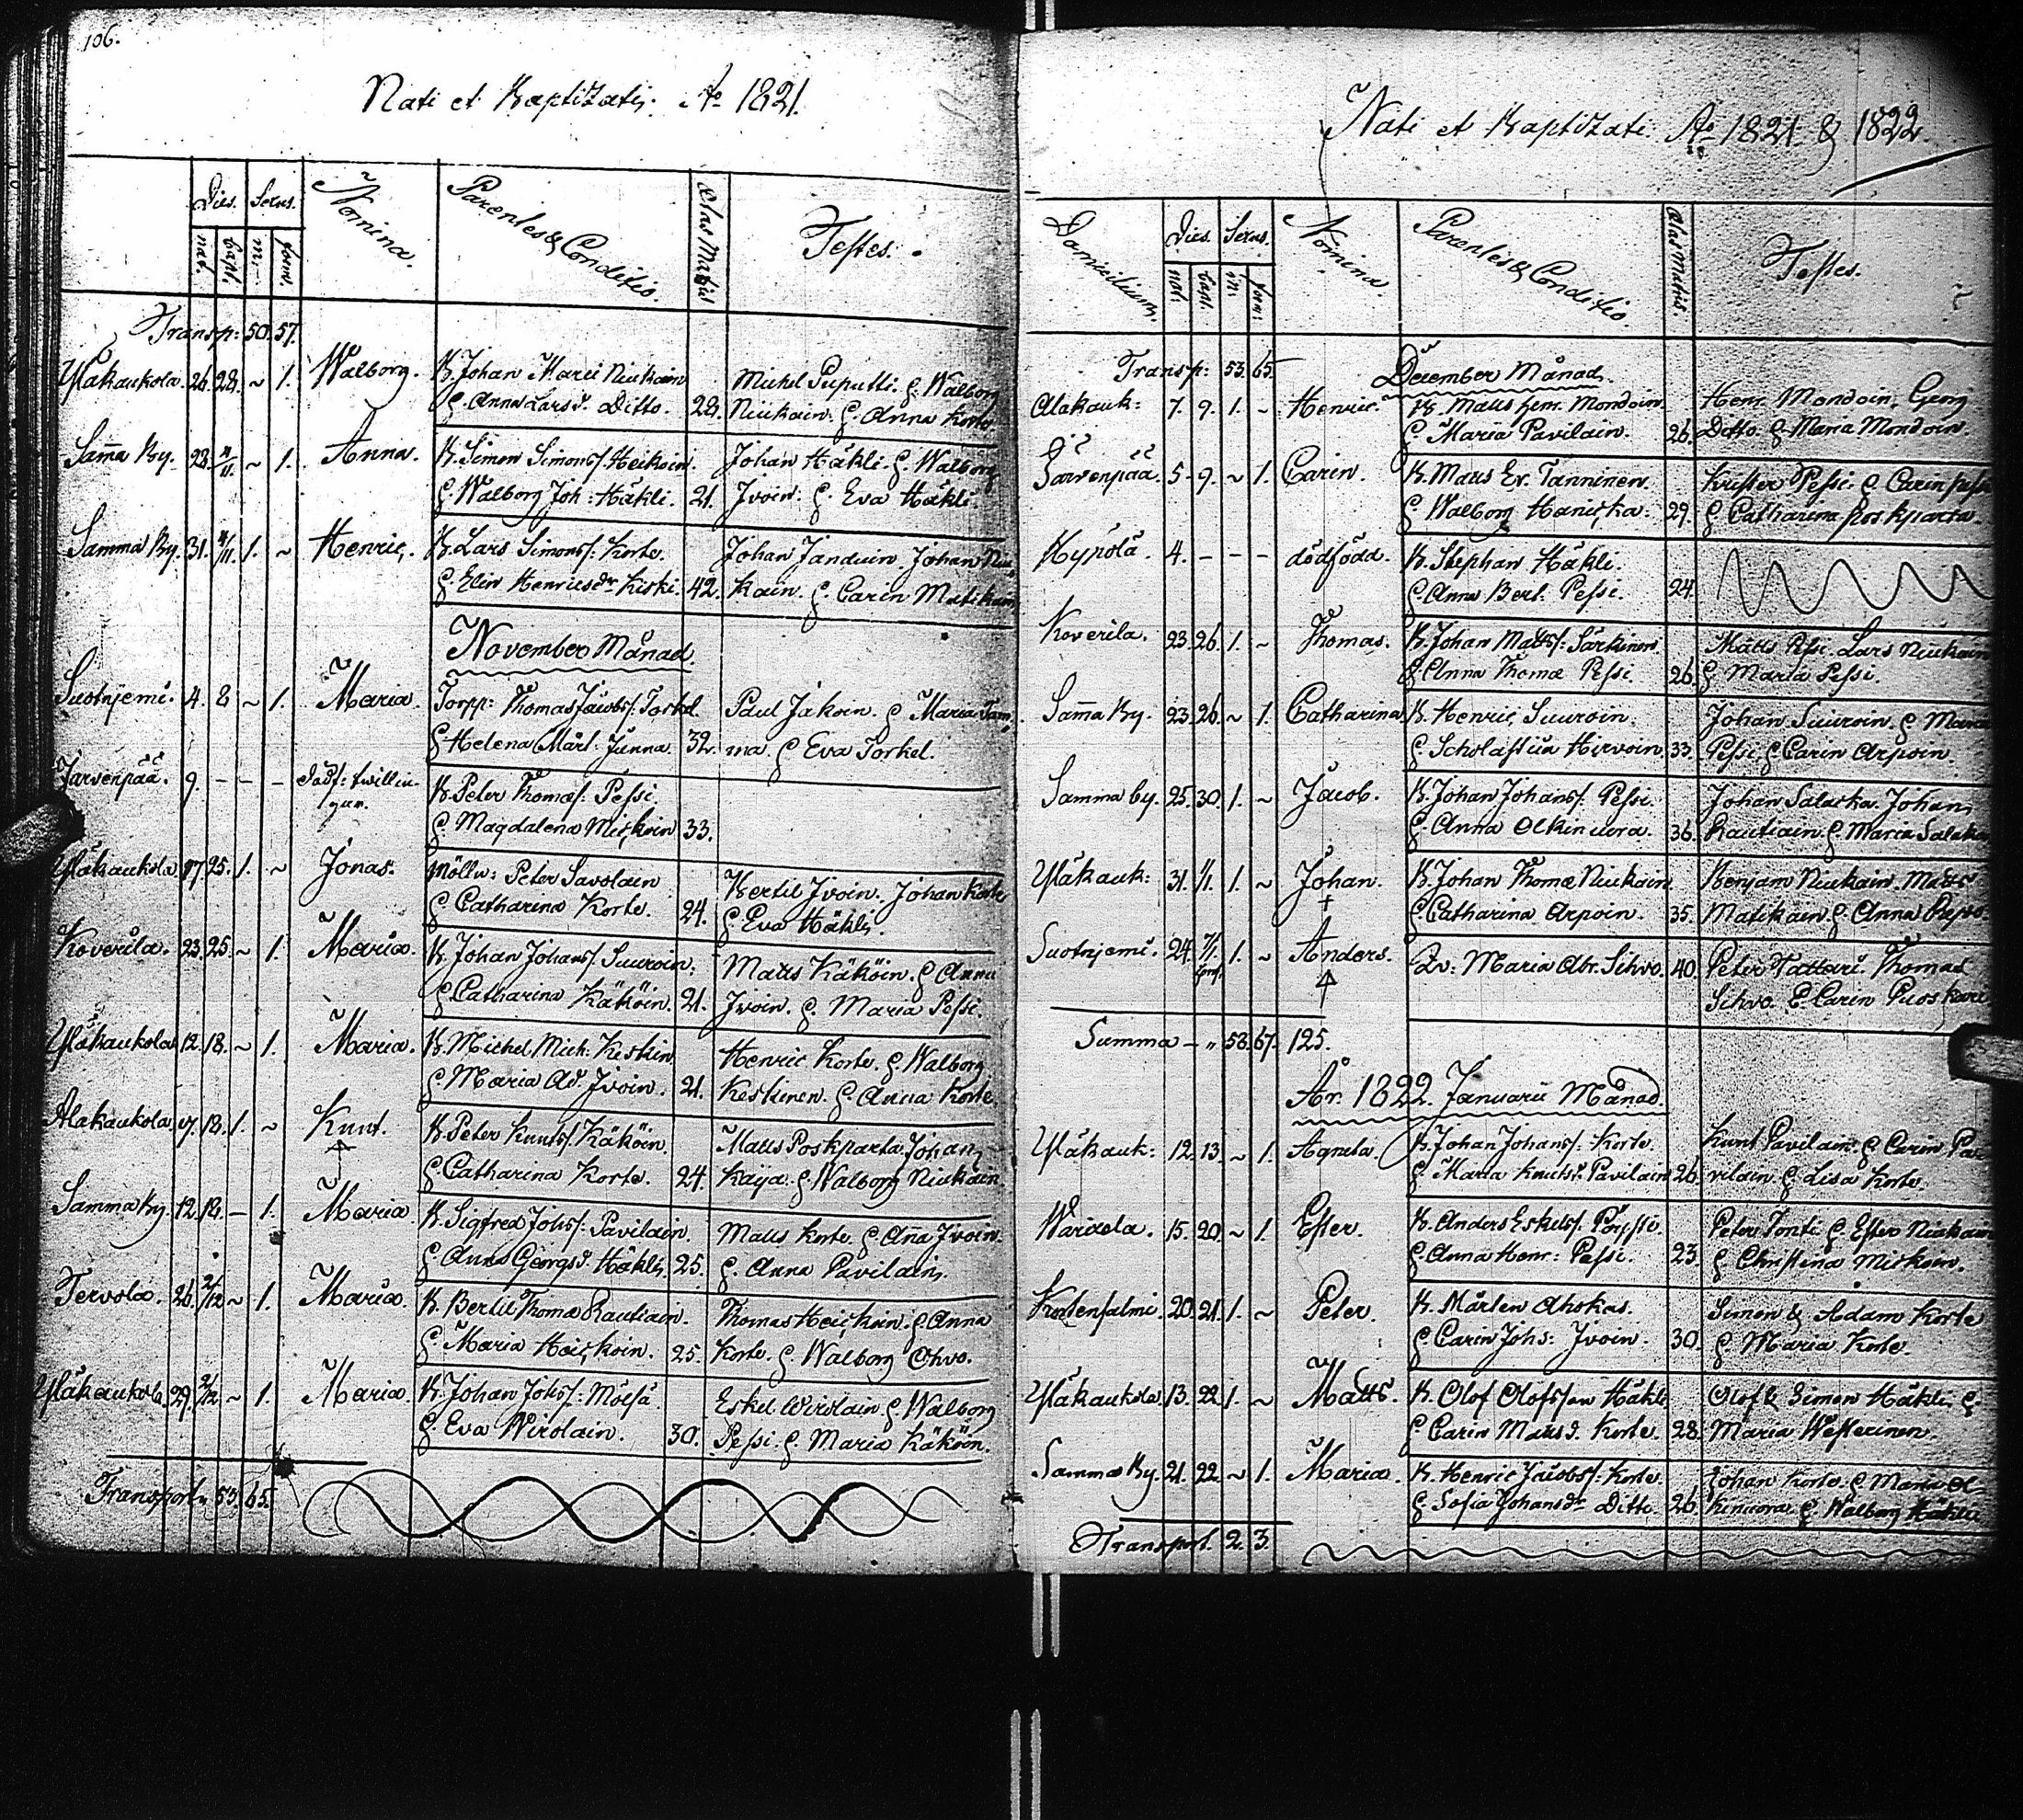 106.
Nati et Baptizati. Ao 1821.
Dies. Sexus. Nomina. Parentes & Conditio. Ætas Matris Testes.
nat. bapt. m. foem.
Transp: 50. 57.
Yläkaukola. 26. 28. ~ 1. Walborg. B. Johan Matts Niukain Michel Puputti. H. Walborg
H. Anna Larsd. Ditto. 28. Niukain. H. Anna Korte
Samma By. 28. 4/11. ~ 1. Anna. B. Simon Simonss. Heikoin. Johan Häkli. H. Walborg
H. Walborg Joh: Häkli. 21. Ivoin. H. Eva Häkli.
Samma By. 31. 4/11. 1. ~ Henric. B. Lars Simonss: Korte. Johan Janduin. Johan Niu
H. Elin Henricsdr Kiski. 42. kain. H. Carin Matikain
November Månad.
Suotnjemi. 4. 8 ~ 1. Maria. Torpp: Thomas Jacobss. Torkel Paul Jakoin. H. Maria Tam
H. Helena Mårt: Junna. 32. ma. H. Eva Torkel.
Järvenpää. 9. - - - dödf: twillin-
gar. B. Peter Thomæs: Pessi.
H. Magdalena Miskoin 33.
Yläkaukola 17. 25. 1. ~ Jonas. Mölln: Peter Savolain Bertil Ivoin. Johan Korte
H. Catharina Korte. 24. H. Eva Häkli.
Koverila. 23. 25. ~ 1. Maria. B. Johan Johanss. Suuroin. Matts Käköin. H. Anna
H. Catharina Käköin. 21. Ivoin. H. Maria Pessi.
Yläkaukola 12. 18. ~ 1. Maria. B. Michel Mich: Keskin. Henric Korte. H. Walborg
H. Maria Ad. Ivoin. 21. Keskinen. H. Anna Korte.
Alakaukola. 17. 18. 1. ~ Knut. B. Peter Knuts. Käköin. Matts Poskparta. Johan
H. Catharina Korte. 24. Kaija. H. Walborg Niukain
Samma By. 12. 18. - 1. Maria B. Sigfred Johss: Pavilain. Matts Korte. H. Anna Ivoin.
H. Anna Georgsd. Häkli. 25. H. Anna Pavilain.
Tervola. 26. 2/12 ~ 1. Maria. B. Bertil Thomæ Rautiain. Thomas Heiskoin. H. Anna
H. Maria Heiskoin. 25. Korte. H. Walborg Ohvo.
Yläkaukola. 29. 2/12 ~ 1. Maria. B. Johan Johss: Mölsä. Eskel Wirolain H. Walborg
H. Eva Wirolain. 30. Pessi. H. Maria Käköin.
Transport. 53. 65.
Nati et Baptizati. Ao 1821. & 1822.
Domicilium. Dies. Sexus. Nomina. Parentes & Conditio. Ætas Matris. Testes.
nat. bapt. m: foem:
Transp: 53. 65. December Månad.
Alakauk: 7. 9. 1. - Henric. B. Matts Henr. Mondoin. Henr. Mondoin. Georg
H. Maria Pavilain. 26. Ditto. H. Maria Mondoin.
Järvenpää. 5. 9. ~ 1. Carin. B. Matts Er. Tanninen. Krister Pessi. H. Carin Pessi
H. Walborg Haniska. 29. H. Catharina Poskparta.
Kypölä. 4. - - - dödfödd. B. Stephan Häkli.
H. Anna Bert. Pessi. 24.
Koverila. 23. 26. 1. ~ Thomas. B. Johan Mattss: Särkinen Matts Pessi. Lars Niukain
H. Anna Thomæ Pessi. 26. H. Maria Pessi.
Samma By. 23. 26. ~ 1. Catharina B. Henric Suuroin. Johan Suuroin. H. Maria
H. Scholastica Hirvoin. 33. Pessi. H. Carin Arpoin.
Samma by. 25. 30. 1. ~ Jacob. B. Johan Johanss: Pessi. Johan Salacka. Johan
H. Anna Olkinuora. 36. Rautiain. H. Maria Salaka
Yläkauk: 31. 1/1. 1. ~ Johan. B. Johan Thomæ Niukain. Benjam Niukain. Matts
H. Catharina Arpoin. 35. Matikain. H. Anna
Suotnjemi. 24. 7/1. 1. ~ Anders. Lv: Maria Abr. Sihvo. 40. Peter Tattari. Thomas
Sihvo. H. Carin Puoskari
Summa - „ 58. 67. 125.
År 1822. Januarii Månad.
Yläkauk: 12. 13. ~ 1. Agneta. B. Johan Johanss: Korte. Knut Pavilain. H. Carin Pa-
H. Maria Knutsd. Pavilain 26. vilain. H. Lisa Korte.
Waricola. 15. 20. ~ 1. Ester. B. Anders Eskelss. Pörssti. Peter Tonti. H. Ester Niukain
H. Anna Henr: Pessi. 23. H. Christina Miskoin.
Kortensalmi. 20. 21. 1. ~ Peter. B. Mårten Ahokas. Simon & Adam Korte
H. Carin Johs: Ivoin. 30. H. Maria Korte.
Yläkaukola. 13. 22. 1. ~ Matts. B. Olof Olofsson Häkli Olof & Simon Häkli. H.
H. Carin Mattsd. Korte. 28. Maria Westerinen.
Samma By. 21. 22. ~ 1. Maria. B. Henric Jacobss: Korte. Johan Korte. H. Maria Ol-
H. Sofia Johansdr Ditto. 26. kinuora. H. Walborg Häkli
Transport. 2. 3.